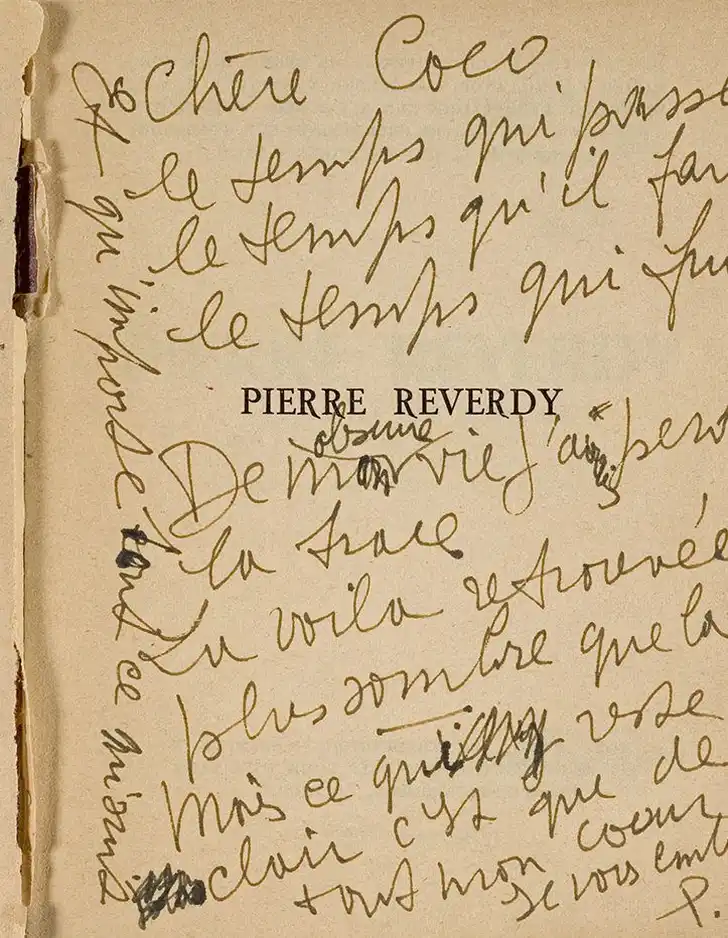 Chère Coco
le temps qui passe
le temps qu'il fai
le temps qui fui
PIERRE REVERDY
obscure
De ma vie j'avais perd
la trace
La voilà retrouvée
plus sombre que la
Mais ce qui reste
clair c'est que de
tout mon coeur
je vous emb
P.
Et qu'importe tout ce